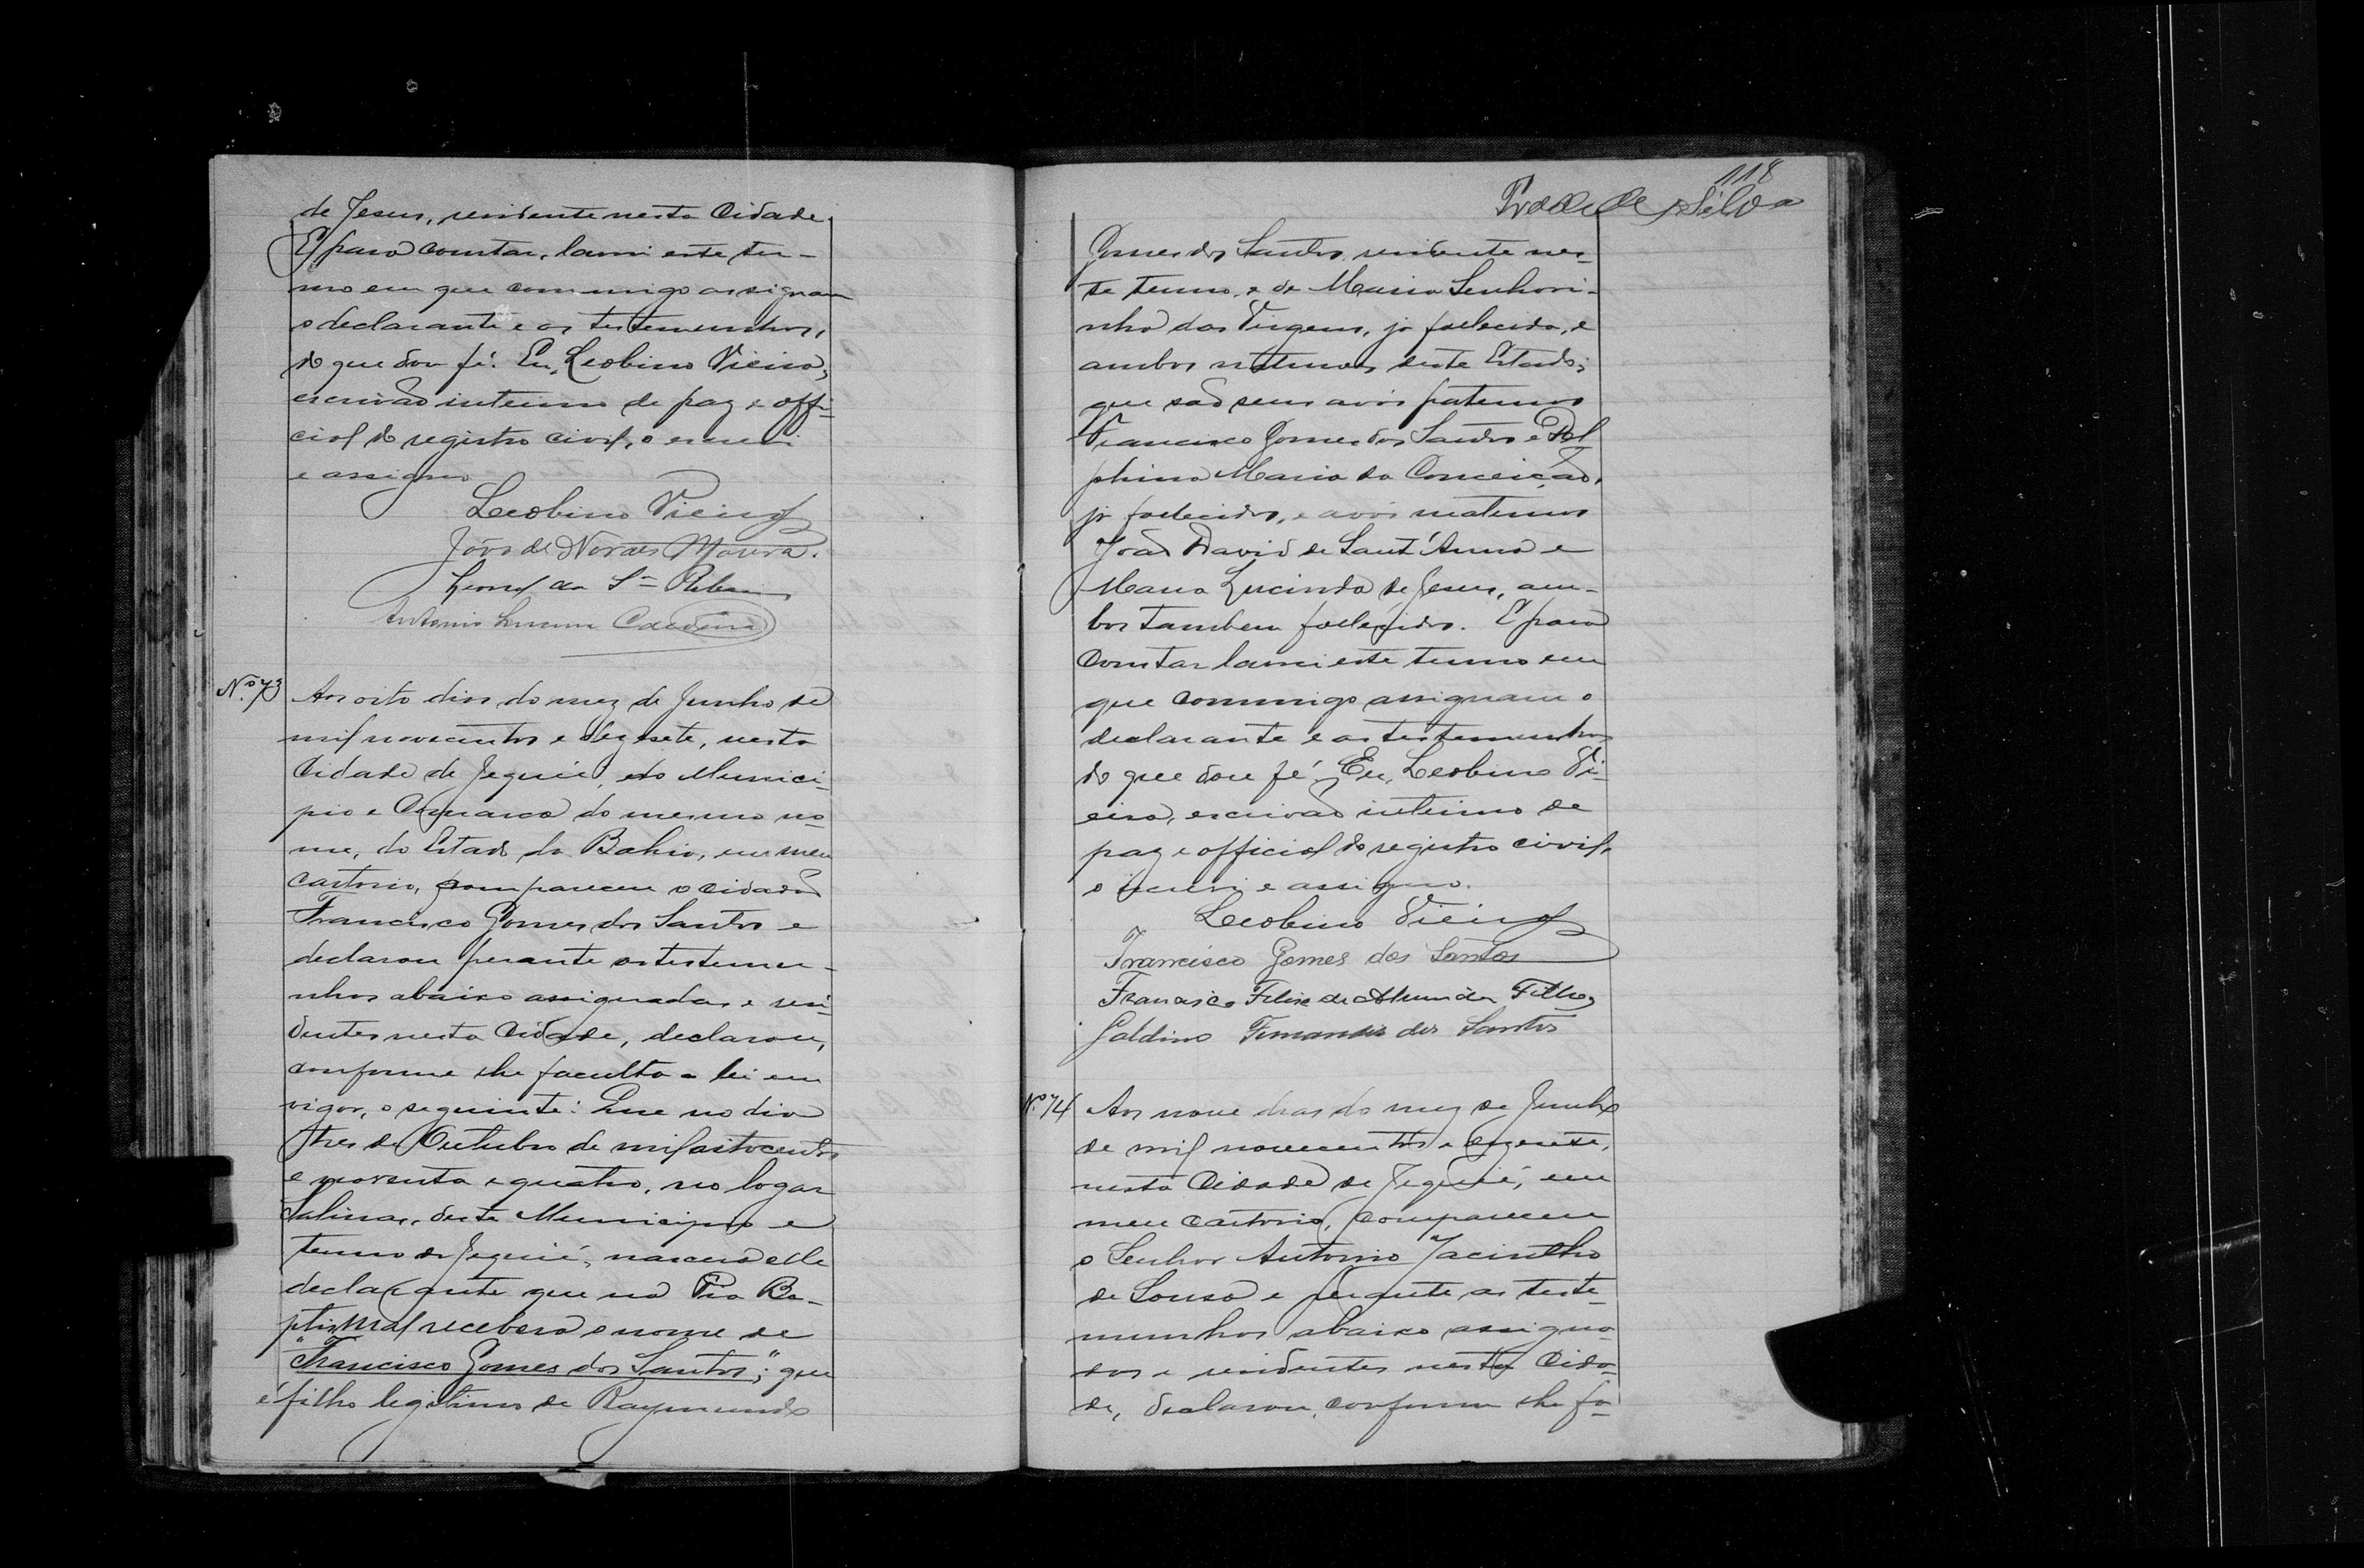 de Jesus, residente nesta Cidade.
E para constar, lavrei este ter-
mo em que commigo assignam
o declarante e as testemunhas,
do que dou fé. Eu, Leobino Vieira,
escrivão interino de paz e offi-
cial do registro civil, o escrevi
e assigno
Leobino Vieira
João de Moraes Moura.
Antonio Cardoso
Nº 73
Aos oito dias do mez de Junho de
mil novecentos e dezesete, nesta
Cidade de Jequié, do Munici-
pio e Comarca do mesmo no-
me, do Estado da Bahia, em meu
cartorio, compareceu o cidadão
Francisco Gomes dos Santos e
declarou perante as testemu-
nhas abaixo assignadas e resi-
dentes nesta Cidade, declarou,
conforme lhe faculta a lei em
vigor, o seguinte: Que no dia
tres de Outubro de mil oitocentos
e noventa e quatro, no logar
Salinas, deste Municipio e
termo de Jequié, nascera elle
declarante que na Pia Ba-
ptismal recebera o nome de
"Francisco Gomes dos Santos"; que
é filho legitimo de Raymundo
118
de Silva
Gomes dos Santos, residente nes-
te termo, e de Maria Senhori-
nha das Virgens, já fallecida, e
ambos naturaes deste Estado;
que são seus avós paternos
Francisco Gomes dos Santos e Del
phina Maria da Conceição,
já fallecidos, e avós maternos
João David de Sant'Anna e
Maria Lucinda de Jesus, am-
bos tambem fallecidos. E para
constar lavrei este termo em
que commigo assignam o
declarante e as testemunhas
do que dou fé. Eu, Leobino Vi-
eira, escrivão interino de
paz e official do registro civil,
o escrevi e assigno.
Leobino Vieira
Francisco Gomes dos Santos
Francisco Felix de Almeida Filho
Galdino Fernandes dos Santos
Nº 74
Aos nove dias do mez de Junho
de mil novecentos e dezesete,
nesta Cidade de Jequié, em
meu cartorio, compareceu
o Senhor Antonio Jacintho
de Sousa e perante as teste-
munhas abaixo assigna-
das e residentes nesta Cida-
de, declarou, conforme lhe fa-